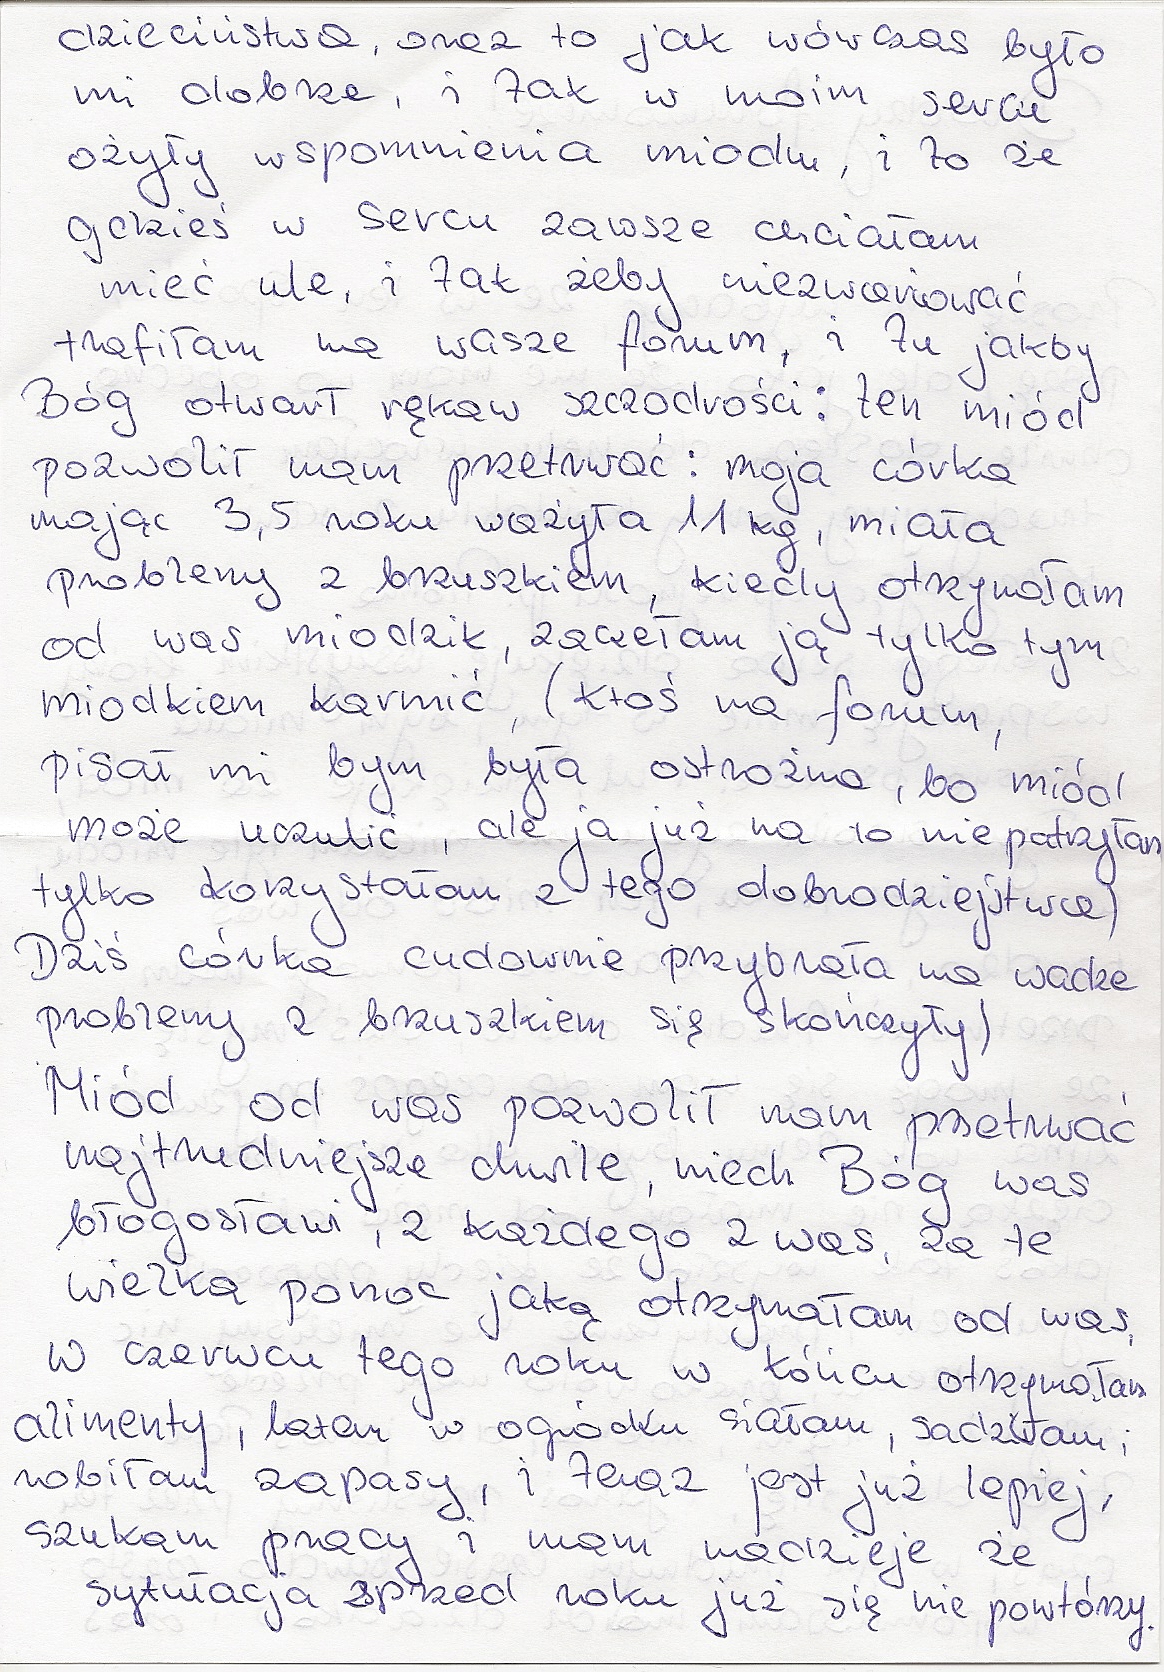 dzieciństwa, oraz to jak wówczas było
mi dobrze, i tak w moim sercu
ożyły wspomnienia miodu, i to że
gdzieś w sercu zawsze chciałam
mieć ule, i tak żeby niezwariować
trafiłam na wasze forum, i tu jakby
Bóg otwarł rękaw szczodrości: ten miód
pozwolił nam przetrwać: moja córka
mając 3,5 roku ważyła 11 kg, miała
problemy z brzuszkiem, kiedy otrzymałam
od was miodzik, zaczełam ją tylko tym
miodkiem karmić, (ktoś na forum,
pisał mi bym była ostrożna, bo miód
może uczulić, ale ja już na to nie patrzyłam
tylko korzystałam z tego dobrodziejstwa)
Dziś córka cudownie przybrała na wadze
problemy z brzuszkiem się skończyły)
Miód od was pozwolił nam przetrwać
najtrudniejsze chwile, niech Bóg was
błogosławi, z każdego z was, za te
wielką pomoc jaką otrzymałam od was,
w czerwcu tego roku w końcu otrzymałam
alimenty, latem w ogródku siałam, sadziłam i
robiłam zapasy, i teraz jest już lepiej,
szukam pracy i mam nadzieje że
sytułacja sprzed roku już się nie powtórzy.